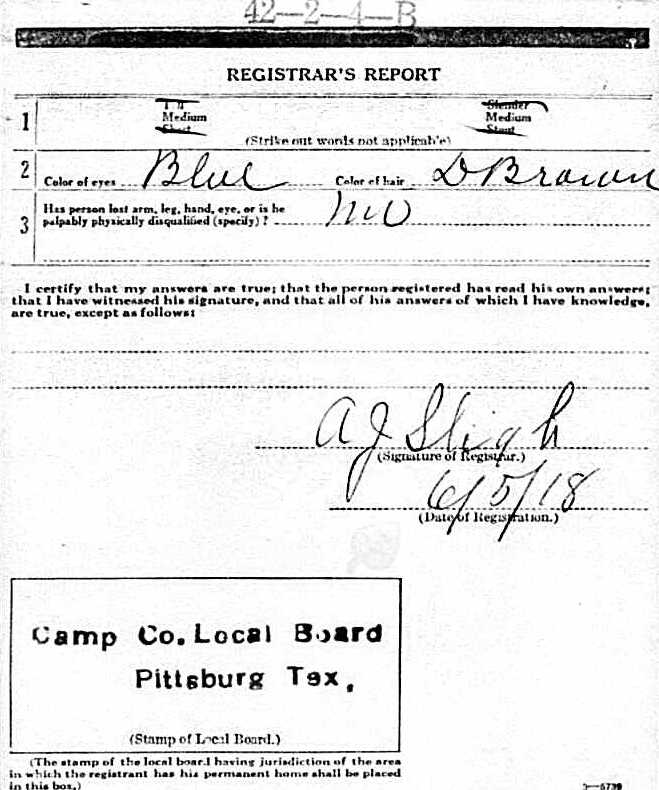 42—2—4—B
REGISTRAR'S REPORT
1
Medium
Short
Slender
Medium
Stout
(Strike out words not applicable)
2 Color of eyes Blue Color of hair D Brown
3 Has person lost arm, leg, hand, eye, or is he
palpably physically disqualified (specify)? no
I certify that my answers are true; that the person registered has read his own answers;
that I have witnessed his signature, and that all of his answers of which I have knowledge,
are true, except as follows:
A J Sligh
(Signature of Registrar.)
6/5/18
(Date of Registration.)
Camp Co. Local Board
Pittsburg Tex.
(Stamp of Local Board.)
(The stamp of the local board having jurisdiction of the area
in which the registrant has his permanent home shall be placed
in this box.)
3—5739